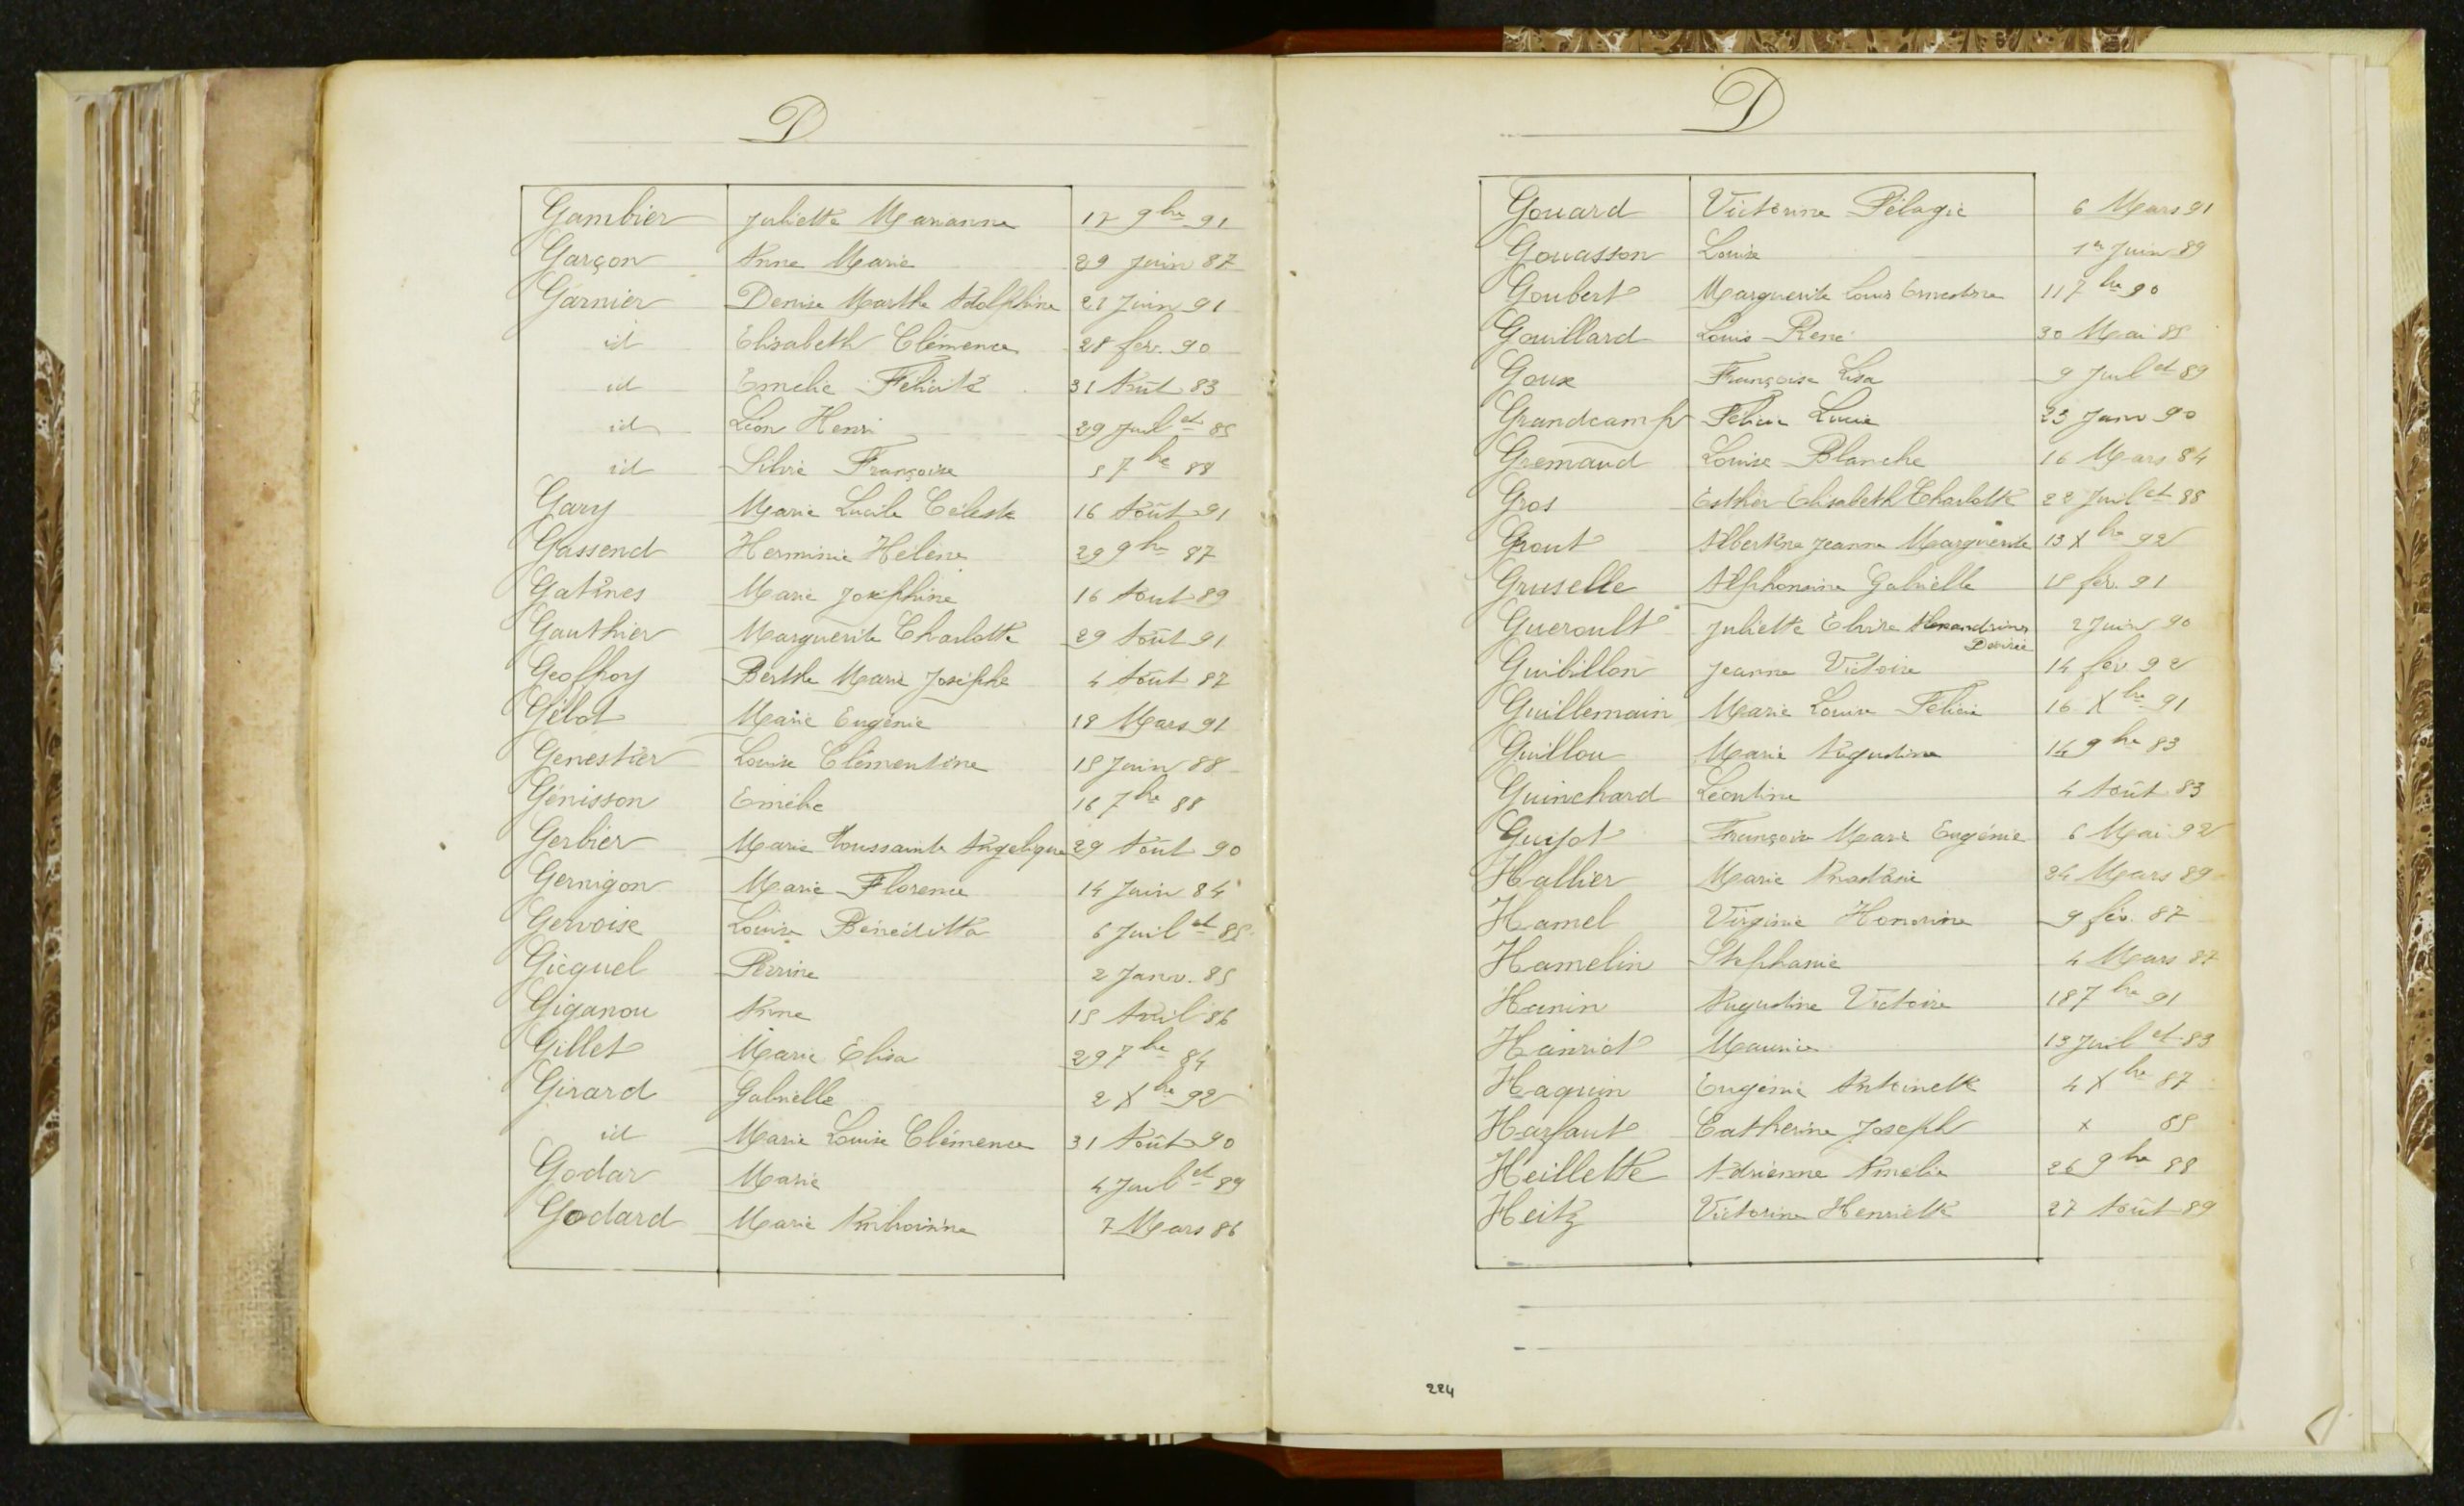 D
Gambier Juliette Marianne 17 9bre 91
Garçon Anne Marie 29 Juin 87
Garnier Denise Marthe Adolphine 21 Juin 91
id Elisabeth Clémence 28 fev. 90
id Emelie Félicité 31 Août 83
id Léon Henri 29 Juil et 85
id Silvie Françoise 5 7bre 88
Gary Marie Lucile Céleste 16 Août 91
Gassend Herminie Hélène 29 9bre 87
Gatines Marie Joséphine 16 Aout 89
Gauthier Marguerite Charlotte 29 Août 91
Geoffroy Berthe Marie Josèphe 4 Août 87
Gélot Marie Eugénie 18 Mars 91
Genestier Louise Clémentine 15 Juin 88
Génisson Emélie 16 7bre 88
Gerbier Marie Toussainte Angelique 29 Août 90
Gernigon Marie Florence 14 Juin 84
Gervoise Louise Bénéditta 6 Juil et 85
Gicquel Perrine 2 Janv. 85
Giganou Anne 15 Avril 86
Gillet Marie Elisa 29 7bre 84
Girard Gabrielle 2 Xbre 92
id Marie Louise Clémence 31 Août 90
Godar Marie 4 Juil et 89
Godard Marie Ambroisine 7 Mars 86
D
Gouard Victorine Pélagie 6 Mars 91
Gouasson Louise 1er Juin 89
Goubert Marguerite Louis Ernestine 11 7bre 90
Gouillard Louis René 30 Mai 85
Goux Françoise Lisa 9 Juil et 89
Grandcamp Félicie Lucie 23 Janv 90
Gremaud Louise Blanche 16 Mars 84
Gros Esther Elisabeth Charlotte 22 Juil et 88
Grout Albertine Jeanne Marguerite 13 Xbre 92
Gruselle Alphonsine Gabrielle 18 fev. 91
Gueroult Juliette Elvire Alexandrine 2 Juin 90
Désirée
Guibillon Jeanne Victoire 14 fev 92
Guillemain Marie Louise Félicie 16 Xbre 91
Guillou Marie Augustine 14 9bre 83
Guinchard Léontine 4 Août 83
Guyot Françoise Marie Eugénie 6 Mai 92
Hallier Marie Anastasie 24 Mars 89
Hamel Virginie Honorine 9 fév. 87
Hamelin Stephanie 4 Mars 87
Hanin Augustine Victoire 18 7bre 91
Hanriot Maurice 13 Juil et 83
Haquin Eugénie Antoinette 4 Xbre 87
Harfaut Catherine Joseph x 85
Heillette Adrienne Amélie 26 9bre 88
Heitz Victorine Henriette 27 Août 89
224